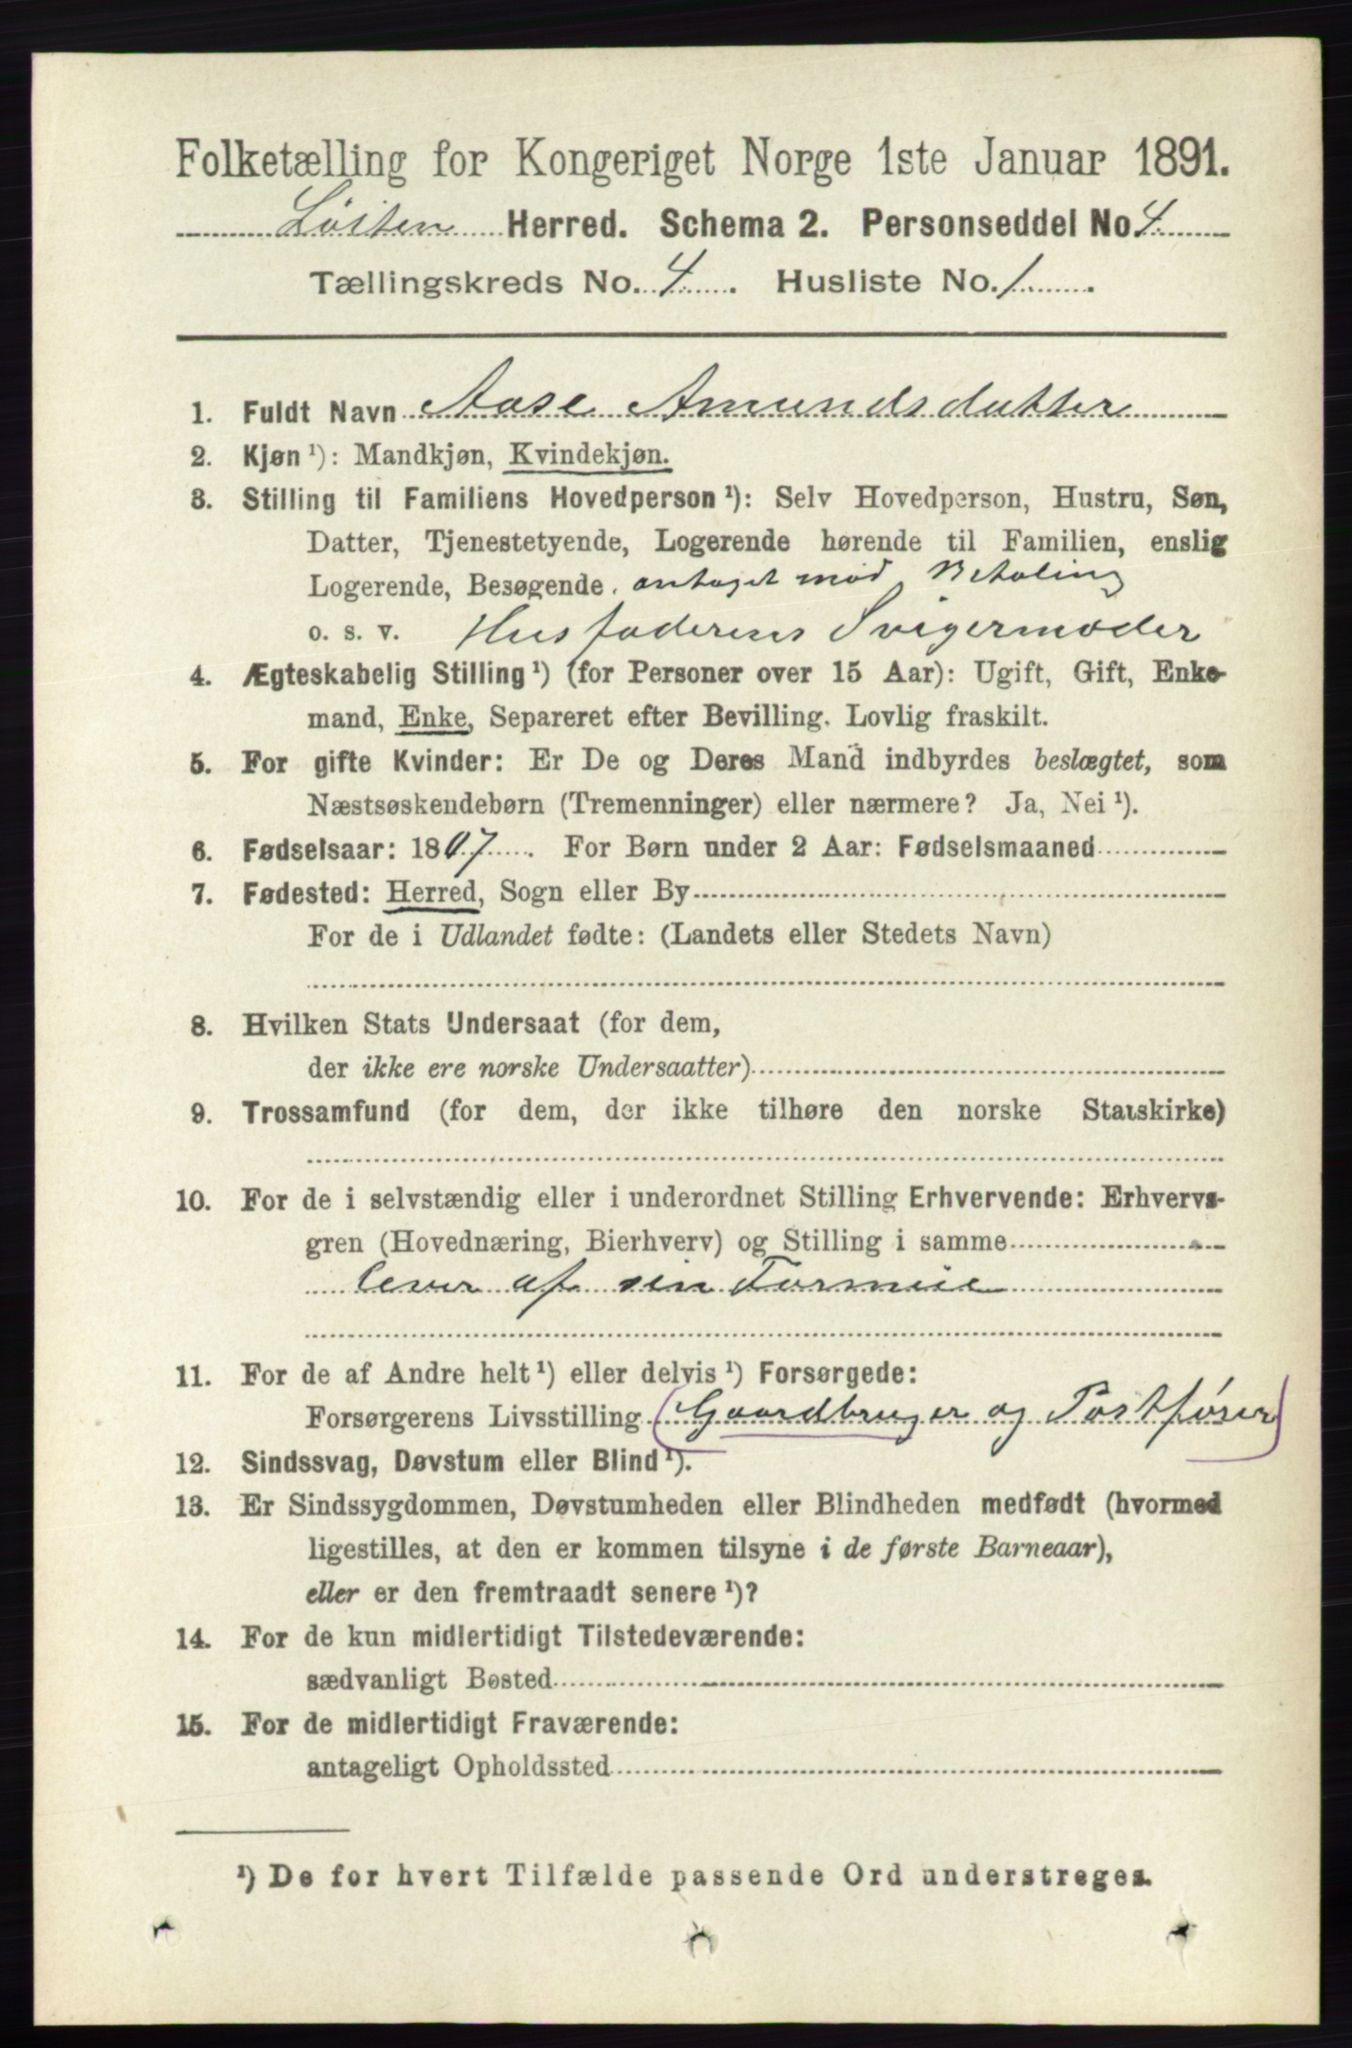 Folketælling for Kongeriget Norge 1ste Januar 1891.
Löiten Herred. Schema 2. Personseddel No. 4
Tællingskreds No. 4. Husliste No. 1.
1. Fuldt Navn Aase Amundsdatter
2. Kjøn ¹): Mandkjøn, Kvindekjøn.
3. Stilling til Familiens Hovedperson ¹): Selv Hovedperson, Hustru, Søn,
Datter, Tjenestetyende, Logerende hørende til Familien, enslig
Logerende, Besøgende, antaget mod Betaling
o. s. v. Husfaderens Svigermoder
4. Ægteskabelig Stilling ¹) (for Personer over 15 Aar): Ugift, Gift, Enke-
mand, Enke, Separeret efter Bevilling. Lovlig fraskilt.
5. For gifte Kvinder: Er De og Deres Mand indbyrdes beslægtet, som
Næstsøskendebørn (Tremenninger) eller nærmere? Ja, Nei ¹).
6. Fødselsaar: 1807. For Børn under 2 Aar: Fødselsmaaned
7. Fødested: Herred, Sogn eller By
For de i Udlandet fødte: (Landets eller Stedets Navn)
8. Hvilken Stats Undersaat (for dem,
der ikke ere norske Undersaatter)
9. Trossamfund (for dem, der ikke tilhøre den norske Statskirke)
10. For de i selvstændig eller i underordnet Stilling Erhvervende: Erhvervs-
gren (Hovednæring, Bierhverv) og Stilling i samme
lever af sin Formue
11. For de af Andre helt ¹) eller delvis ¹) Forsørgede:
Forsørgerens Livsstilling (Gaardbruger og Postfører)
12. Sindssvag, Døvstum eller Blind ¹).
13. Er Sindssygdommen, Døvstumheden eller Blindheden medfødt (hvormed
ligestilles, at den er kommen tilsyne i de første Barneaar),
eller er den fremtraadt senere ¹)?
14. For de kun midlertidigt Tilstedeværende:
sædvanligt Bosted
15. For de midlertidigt Fraværende:
antageligt Opholdssted
¹) De for hvert Tilfælde passende Ord understreges.